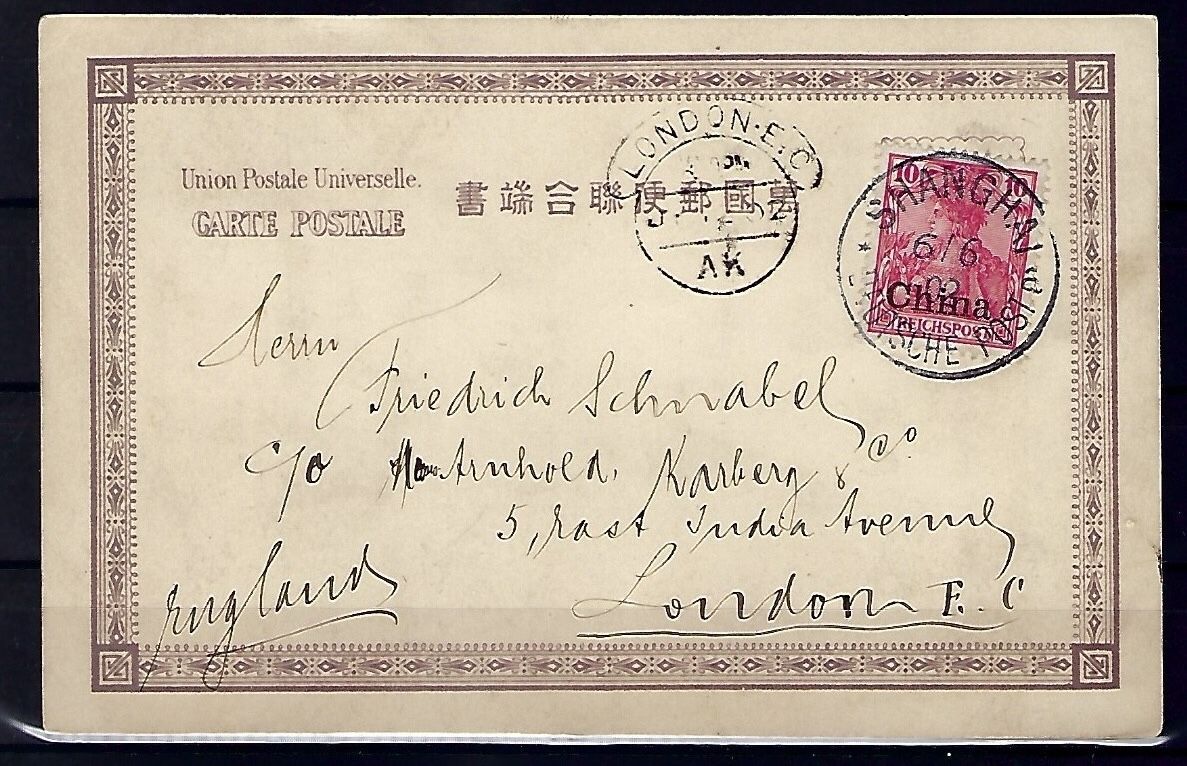 Union Postale Universelle.
CARTE POSTALE
書端合聯便郵國萬
LONDON.E.C
AK
10 10
China
REICHSPOST
SHANGHAI
6/6
02
DEUTSCHE POST
Herrn
Friedrich Schnabel
c/o Arnhold, Karberg & Co
5, East India Avenue
London E.C
England